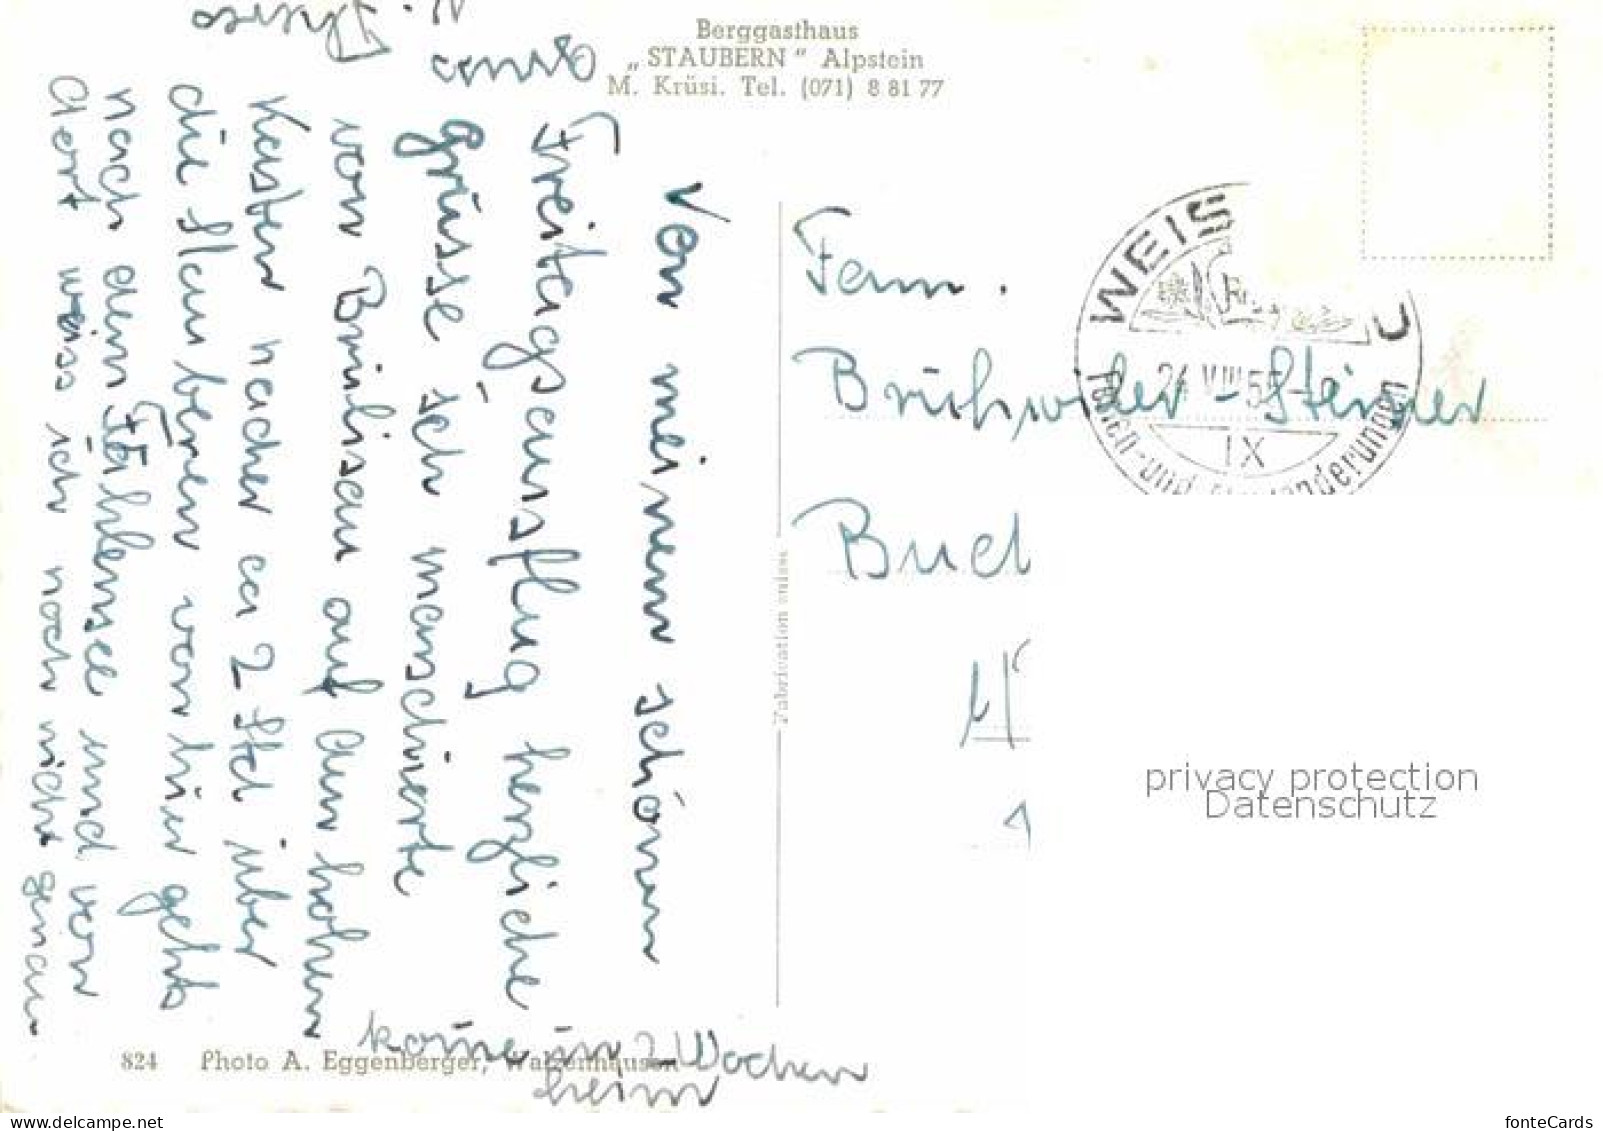 Berggasthaus
„STAUBERN“ Alpstein
M. Krüsi. Tel. (071) 8 81 77
Von meinem schönen
Freitagsausflug herzliche
Grüsse ich marschierte
von Brülisau auf den hohen
Kasten nacher ca 2 Std über
die Staubernen von hier gehts
nach dem Fählensee und von
dert weiss ich noch nicht genau
kome in 2 Wochen
heim
Fam.
Brühwiler-Steiner
WEIS
24 VIII 55
IX
Ferien- und
Fabrication suisse
824 Photo A. Eggenberger, Walzenhausen
privacy protection
Datenschutz
fonteCards